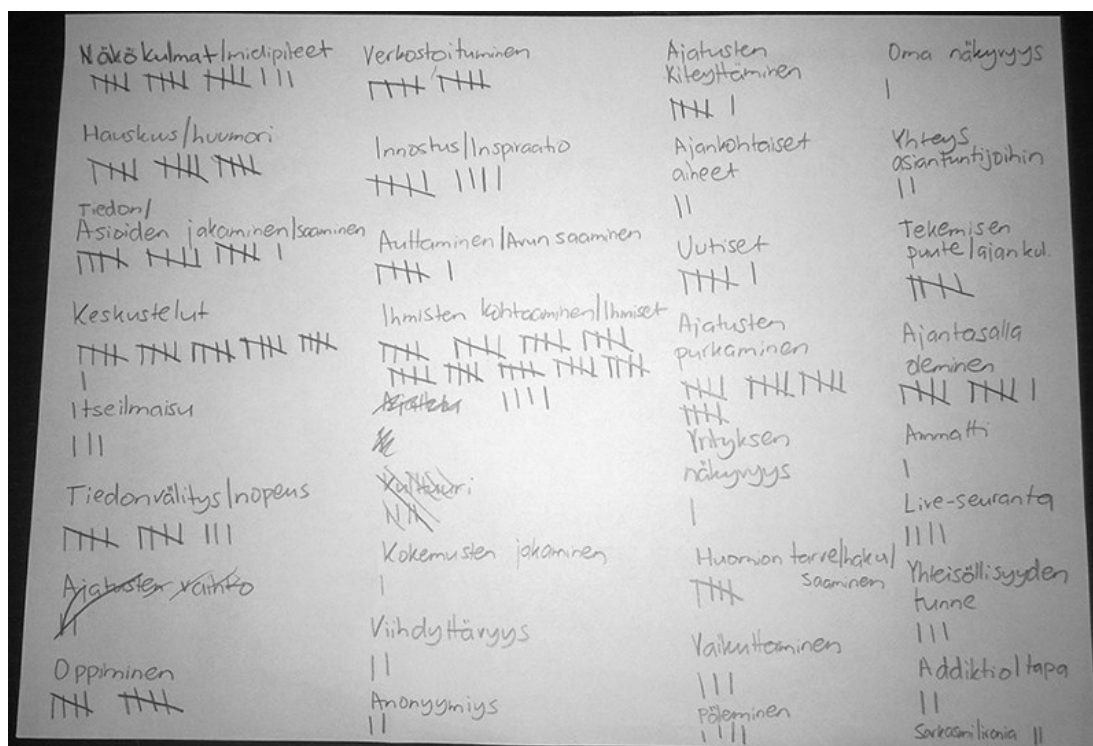 Näkökulmat/mielipiteet
Hauskuus/huumori
Tiedon/
Asioiden jakaminen/saaminen
Keskustelut
Itseilmaisu
Tiedonvälitys/nopeus
Ajatusten vaihto
Oppiminen
Verkostoituminen
Innostus/Inspiraatio
Auttaminen/Avun saaminen
Ihmisten kohtaaminen/Ihmiset
Kulttuuri
Kokemusten jakaminen
Viihdyttävyys
Anonyymiys
Ajatusten
Kiteyttäminen
Ajankohtaiset
aiheet
Uutiset
Ajatusten
purkaminen
Yrityksen
näkyvyys
Huomion tarve/haku/
saaminen
Vaikuttaminen
Päteminen
Oma näkyvyys
Yhteys
asiantuntijoihin
Tekemisen
puute/ajankul.
Ajantasalla
oleminen
Ammatti
Live-seuranta
Yhteisöllisyyden
tunne
Addiktio/tapa
Sarkasmi/ironia